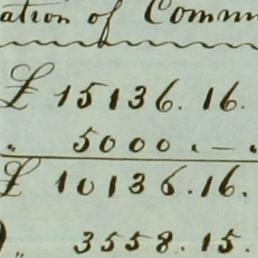 ation of Comm
£ 15136. 16.
" 5000. — "
£ 10136. 16.
" 3558. 15.